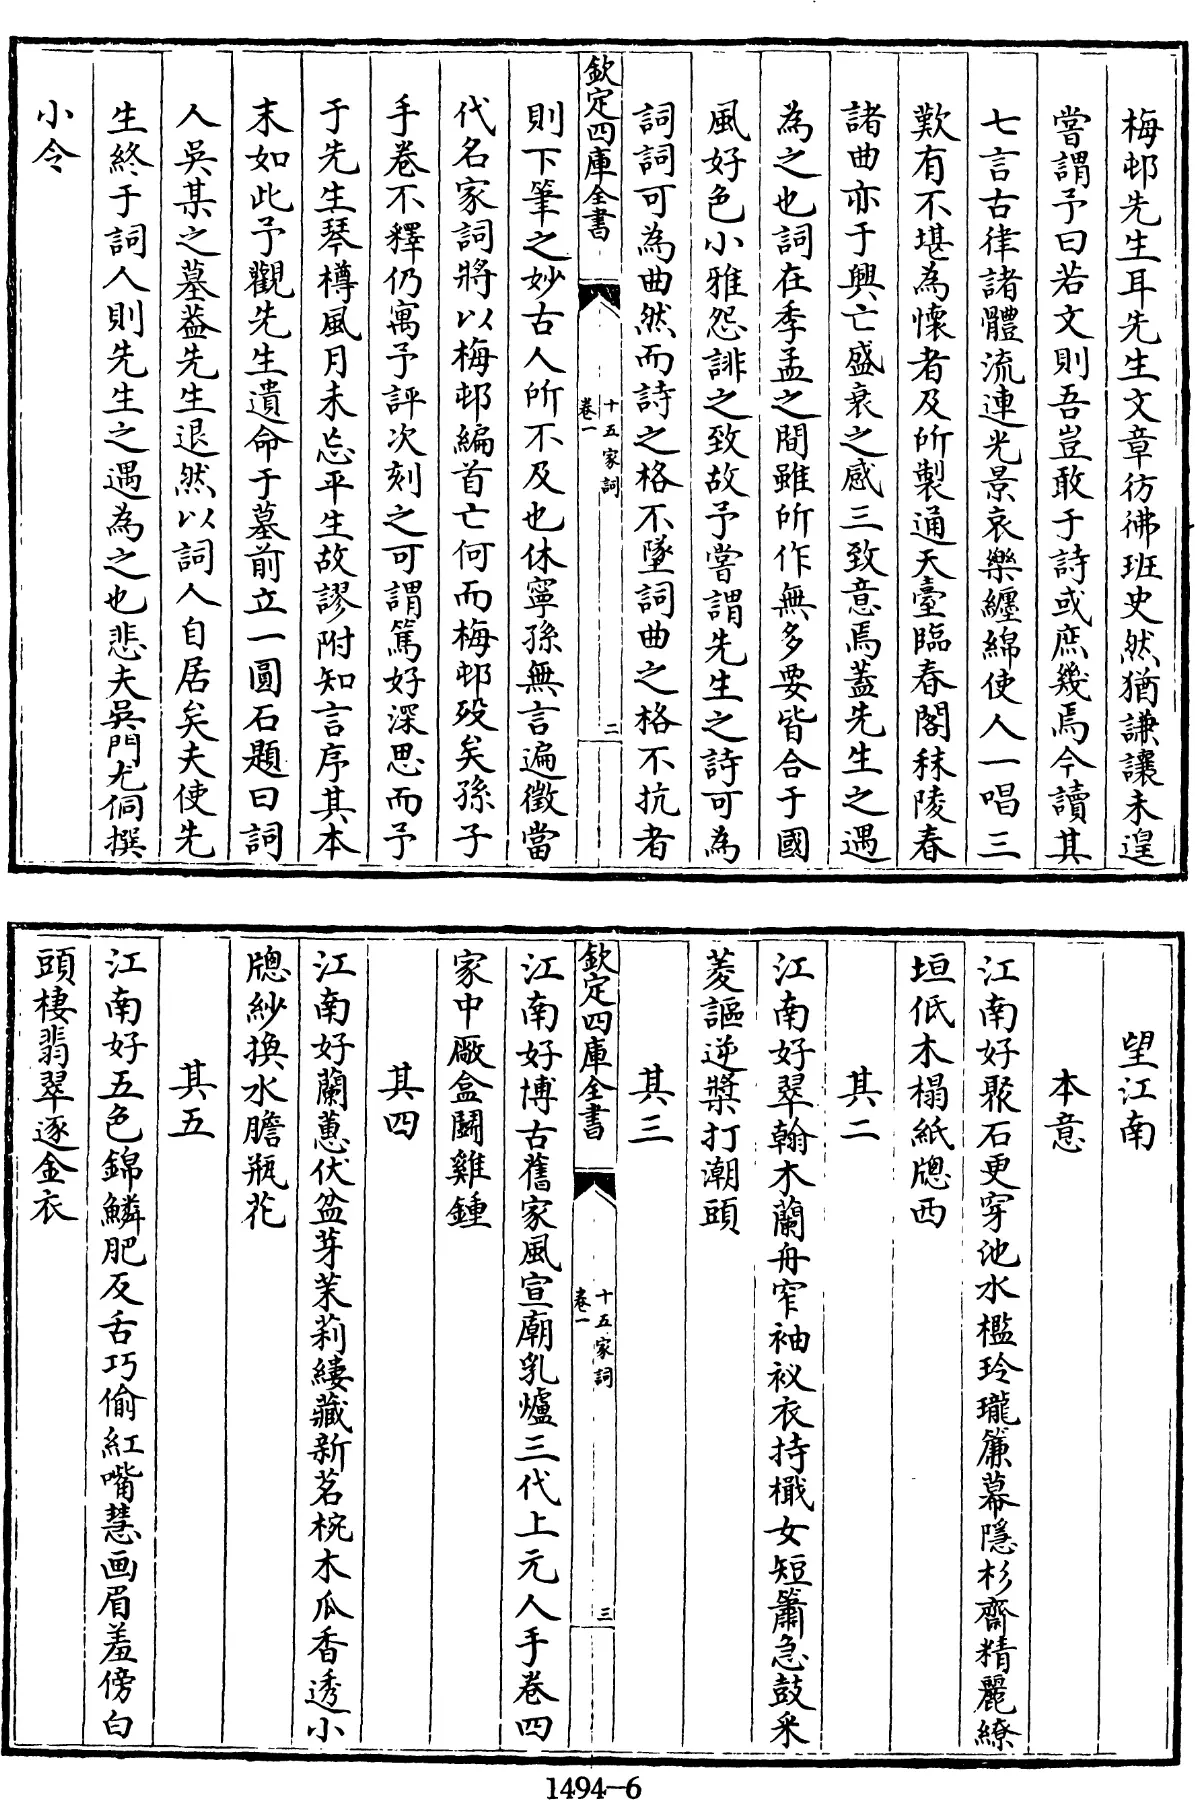 梅邨先生耳先生文章彷彿班史然猶謙讓未遑
嘗謂予曰若文則吾豈敢于詩或庶幾焉今讀其
七言古律諸體流連光景哀樂纏綿使人一唱三
歎有不堪為懷者及所製通天臺臨春閣秣陵春
諸曲亦于興亡盛衰之感三致意焉蓋先生之遇
為之也詞在季孟之間雖所作無多要皆合于國
風好色小雅怨誹之致故予嘗謂先生之詩可為
詞詞可為曲然而詩之格不墜詞曲之格不抗者
欽定四庫全書
十五家詞
卷一
二
則下筆之妙古人所不及也休寧孫無言遍徵當
代名家詞將以梅邨編首亡何而梅邨歿矣孫子
手卷不釋仍寓予評次刻之可謂篤好深思而予
于先生琴樽風月未忘平生故謬附知言序其本
末如此予觀先生遺命于墓前立一圓石題曰詞
人吳某之墓葢先生退然以詞人自居矣夫使先
生終于詞人則先生之遇為之也悲夫吳門尤侗撰
小令
望江南
本意
江南好聚石更穿池水檻玲瓏簾幕隱杉齋精麗繚
垣低木榻紙牕西
其二
江南好翠翰木蘭舟窄袖衩衣持檝女短簫急鼓采
菱謳逆槳打潮頭
其三
欽定四庫全書
十五家詞
卷一
三
江南好博古舊家風宣廟乳爐三代上元人手卷四
家中厰盒鬭雞鍾
其四
江南好蘭蕙伏盆芽茉莉縷藏新茗椀木瓜香透小
牕紗換水膽瓶花
其五
江南好五色錦鱗肥反舌巧偷紅嘴慧画眉羞傍白
頭棲翡翠逐金衣
1494—6